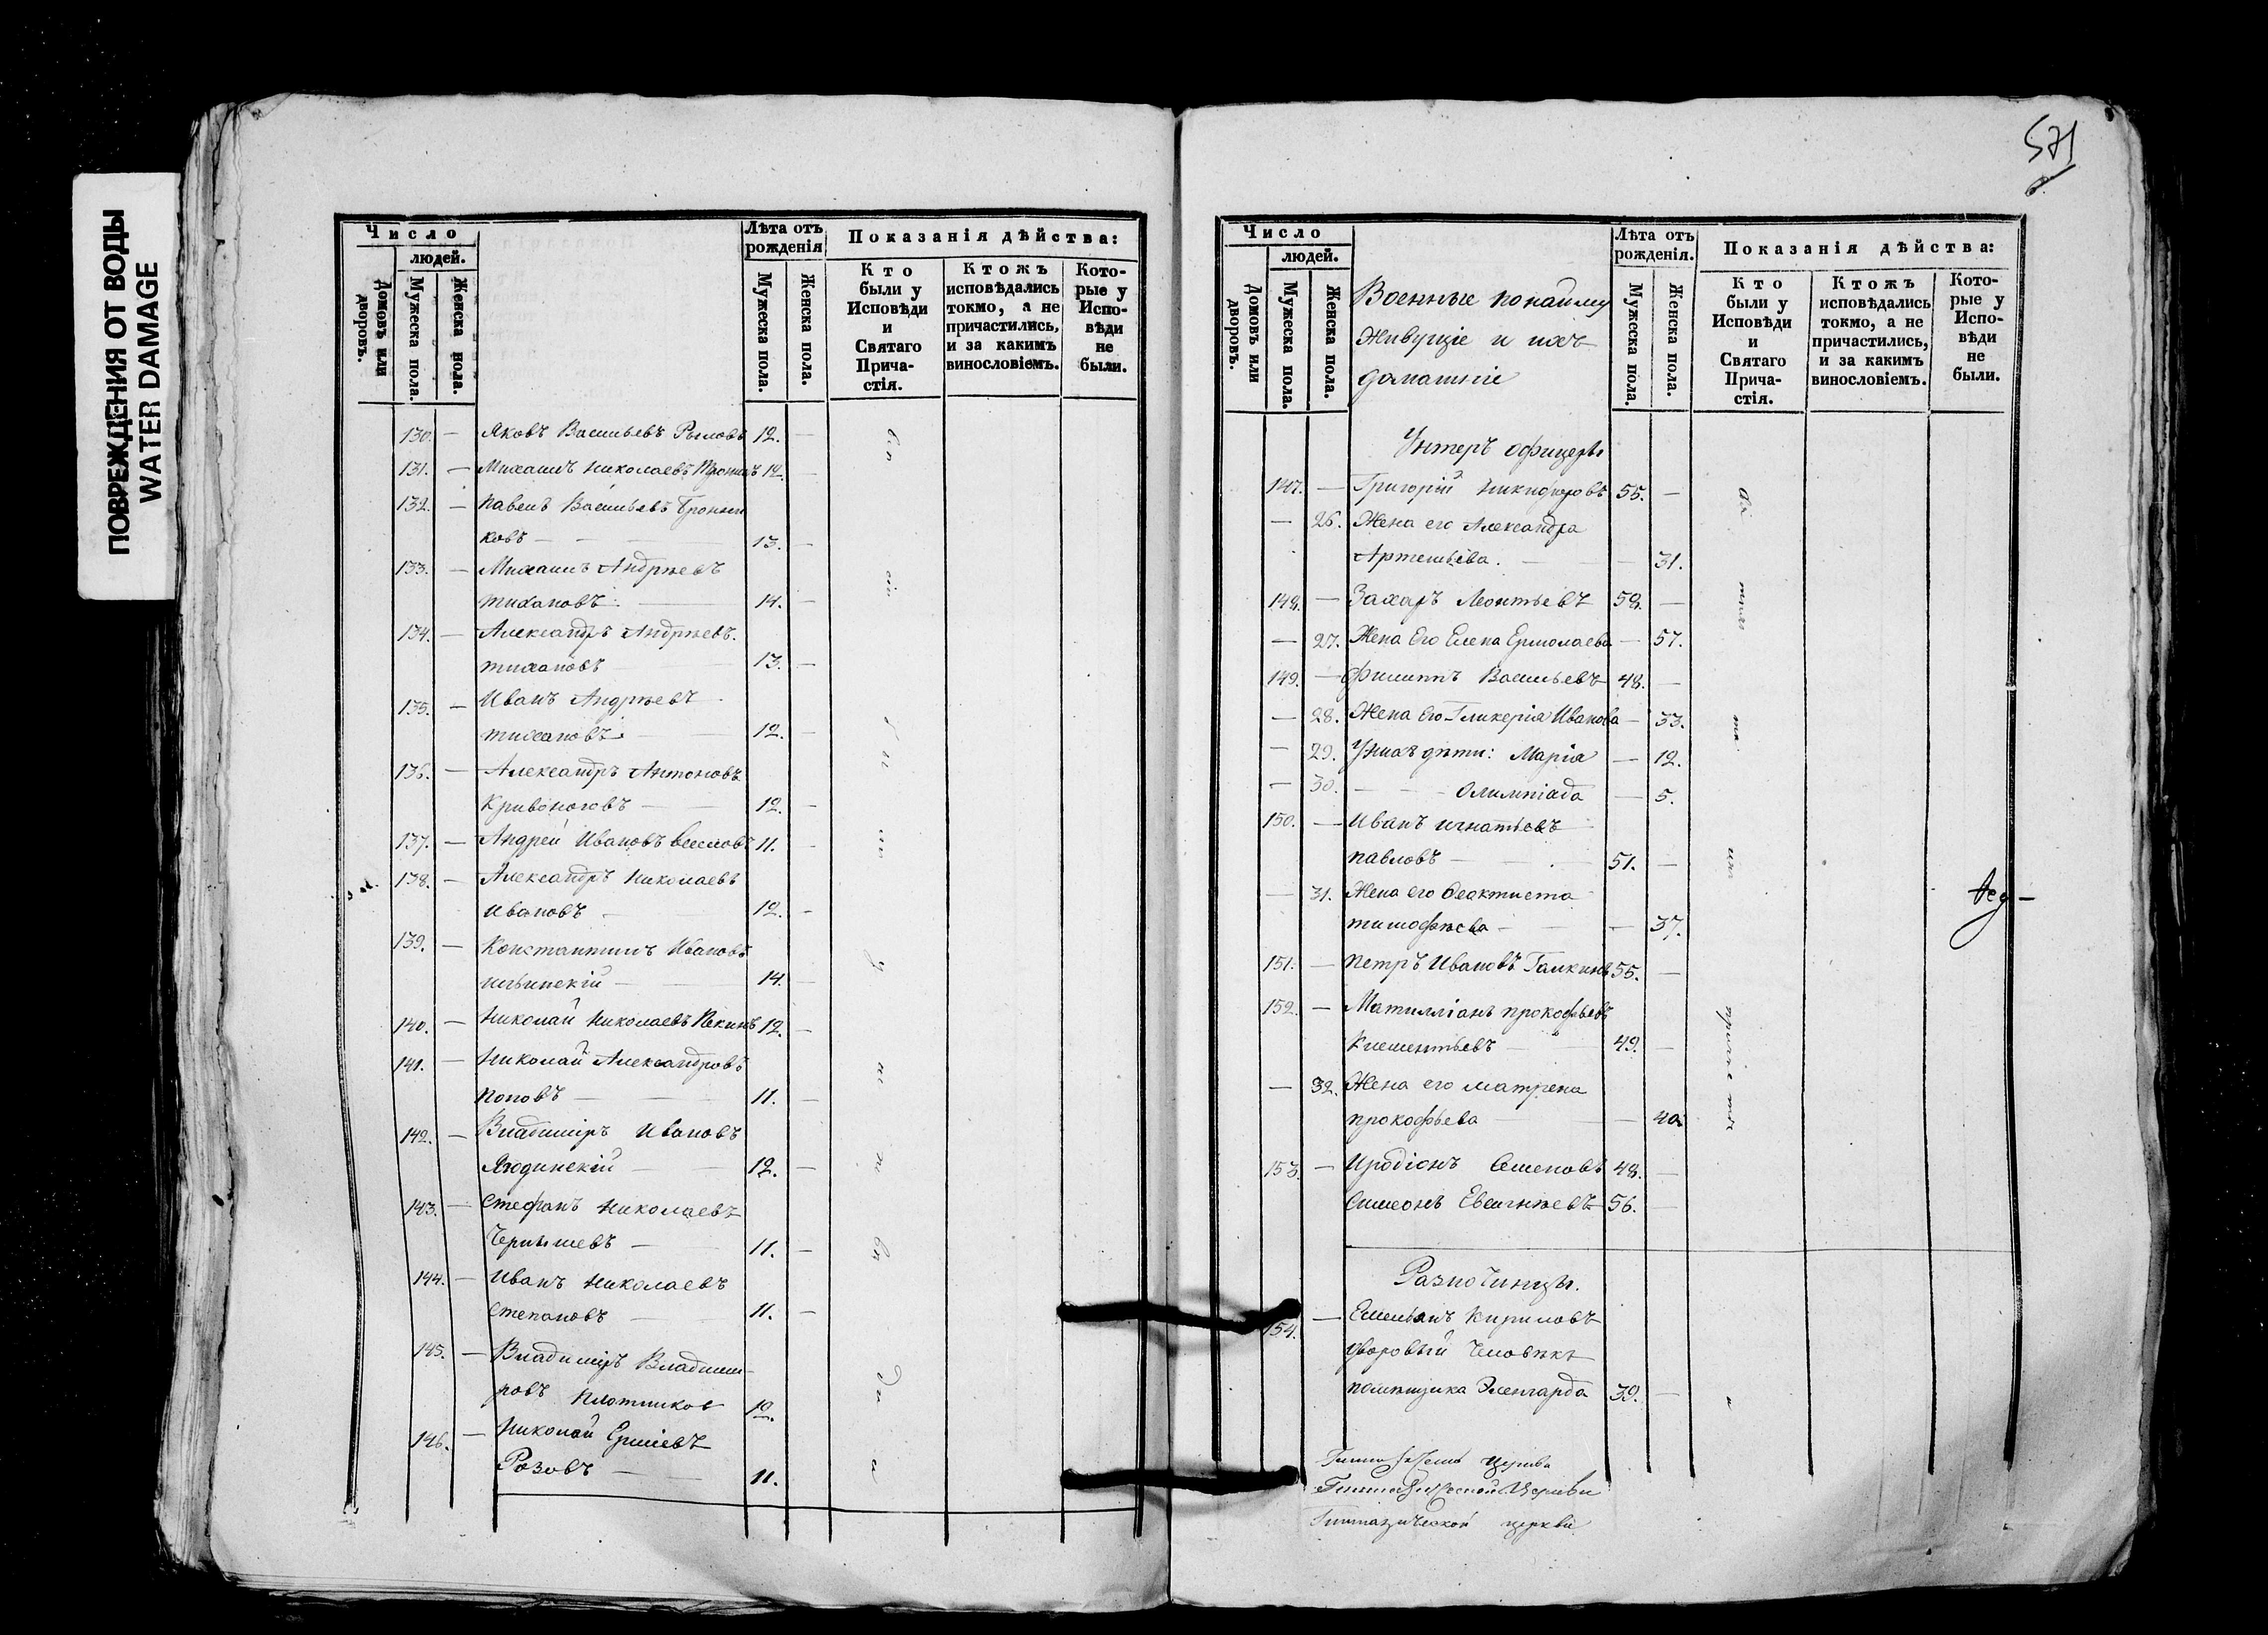 ПОВРЕЖДЕНИЯ ОТ ВОДЫ
WATER DAMAGE
571
Число
людей.
Домовъ или дворовъ.
Мужеска пола.
Женска пола.
Лѣта отъ рожденія
Мужеска пола.
Женска пола.
Показанія дѣйства:
Кто были у Исповѣди и Святаго Прича-стія.
Ктожъ исповѣдались токмо, а не причастились, и за какимъ винословіемъ.
Кото-рые у Испо-вѣди не были.
130. — Яковъ Васильевъ Рыловъ 12. —
131. — Михаилъ Николаевъ 12. —
132. — Павелъ Васильевъ Бронни
ковъ — 13. —
133. — Михаилъ Андрѣевъ
Тихановъ. — 14. —
134. — Александръ Андрѣевъ.
Тихановъ 13. —
135. — Иванъ Андрѣевъ
Тихановъ. 12. —
136. — Александръ Антоновъ
Кривоноговъ — 12. —
137. — Андрей Ивановъ Веселовъ 11. —
138. — Александръ Николаевъ
Ивановъ 12. —
139. — Константинъ Ивановъ
Ильинскій — 14. —
140. — Николай Николаевъ Пекинъ 12. —
141. — Николай Александровъ
Поповъ — 11. —
142. — Владиміръ Ивановъ
Ягодинскій — 12. —
143. — Стефанъ Николаевъ
Чернышевъ — 11. —
144. — Иванъ Николаевъ
Степановъ 11. —
145. — Владиміръ Владими-
ровъ Плотников 12.
146. — Николай
Розовъ — 11.
Число
людей.
Домовъ или дворовъ.
Мужеска пола.
Женска пола.
Военные понайму
живущіе и ихъ
домашніе
Лѣта отъ рожденія.
Мужеска пола.
Женска пола.
Показанія дѣйства:
Кто были у Исповѣди и Святаго Прича-стія.
Ктожъ исповѣдались токмо, а не причастились, и за какимъ винословіемъ.
Кото-рые у Испо-вѣди не были.
Унтеръ офицеры
147. — Григорій Никифоровъ 55. —
— 26. Жена его Александра
Артемьева. — 31.
148. — Захаръ Леонтьевъ 58. —
— 27. Жена Его Елена Ермолаева — 57.
149. — Филиппъ Васильевъ 48. —
— 28. Жена Его Гликерія Иванова — 33.
— 29. Унихъ дѣти: Марія — 12.
— 30. — — Олимпіада — 5.
150. — Иванъ Игнатьевъ
Павловъ — 51. —
— 31. Жена его Феактиста
Тимофѣева — — 37.
151. — Петръ Ивановъ Галкинъ 55. —
152. — Матилліанъ Прокофьевъ
Клементьевъ — 49. —
— 32. Жена его Матрена
Прокофьева — — 40.
153. — Иродіонъ Семеновъ 48. —
Симеонъ Евсигнѣевъ 56. —
Разночинцы.
154. — Емельянъ Кириловъ
дворовый человѣкъ
помѣщика 39. —
Гимназической Церкви
Гимназической церкви